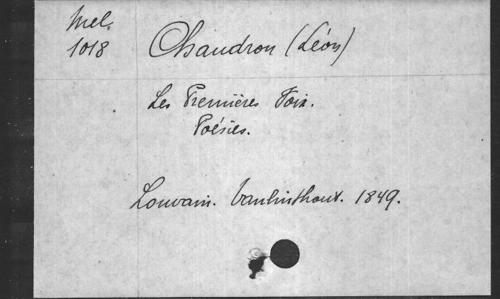 Mel.
1018
Chaudron (Léon)
Les Premières Fois.
Poésies.
Louvain. Vanlinthout. 1849.